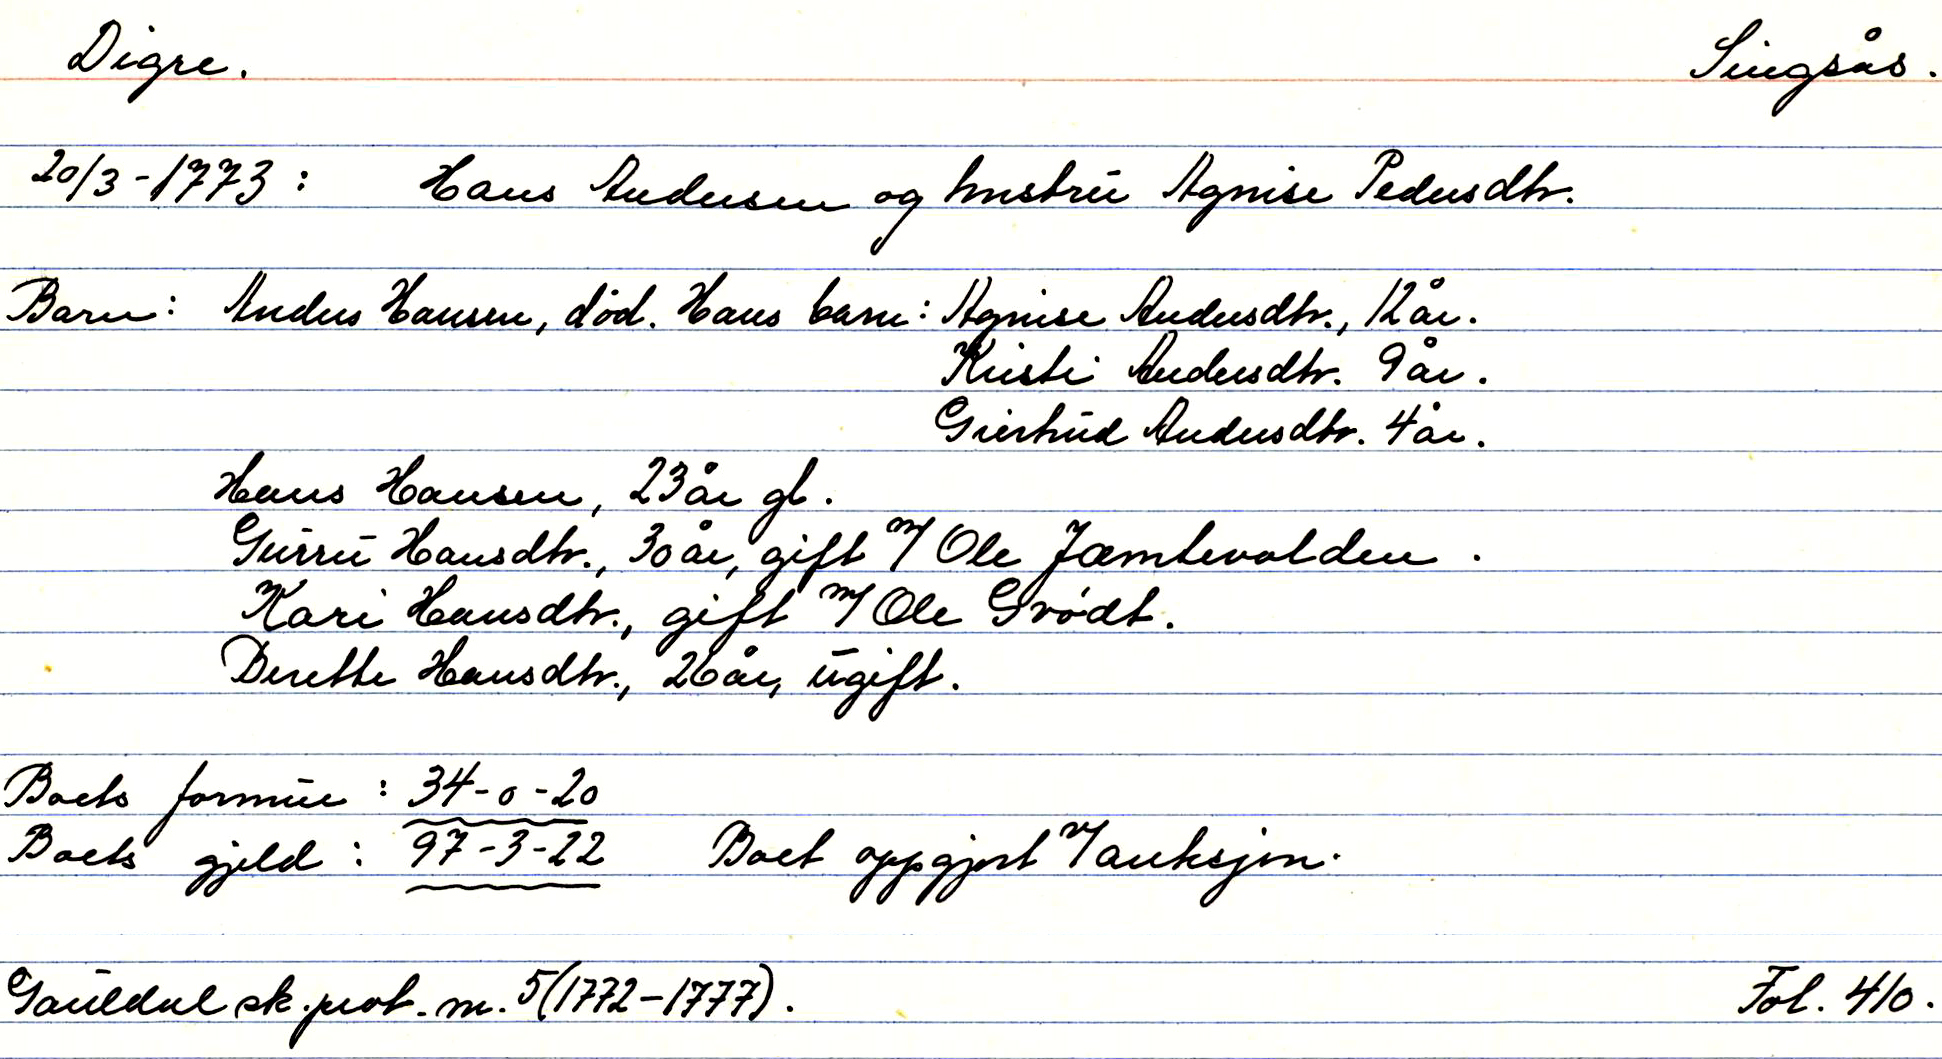 Digre. Singsås.
20/3-1773: Hans Andersen og hustru Agnise Pedersdtr.
Barn: Anders Hansen, død. Hans barn: Agnise Andersdtr., 12 år.
Kirsti Andersdtr. 9 år.
Giertrud Andersdtr. 4 år.
Hans Hansen, 23 år gl.
Gurru Hansdtr., 30 år, gift m/ Ole Jæmtevolden.
Kari Hansdtr., gift m/ Ole Grødt.
Berette Hansdtr., 26 år, ugift.
Boets formue: 34-0-20
Boets gjeld: 97-3-22 Boet oppgjort v/ auksjon.
Gauldal sk.prot. nr. 5 (1772-1777). Fol. 410.